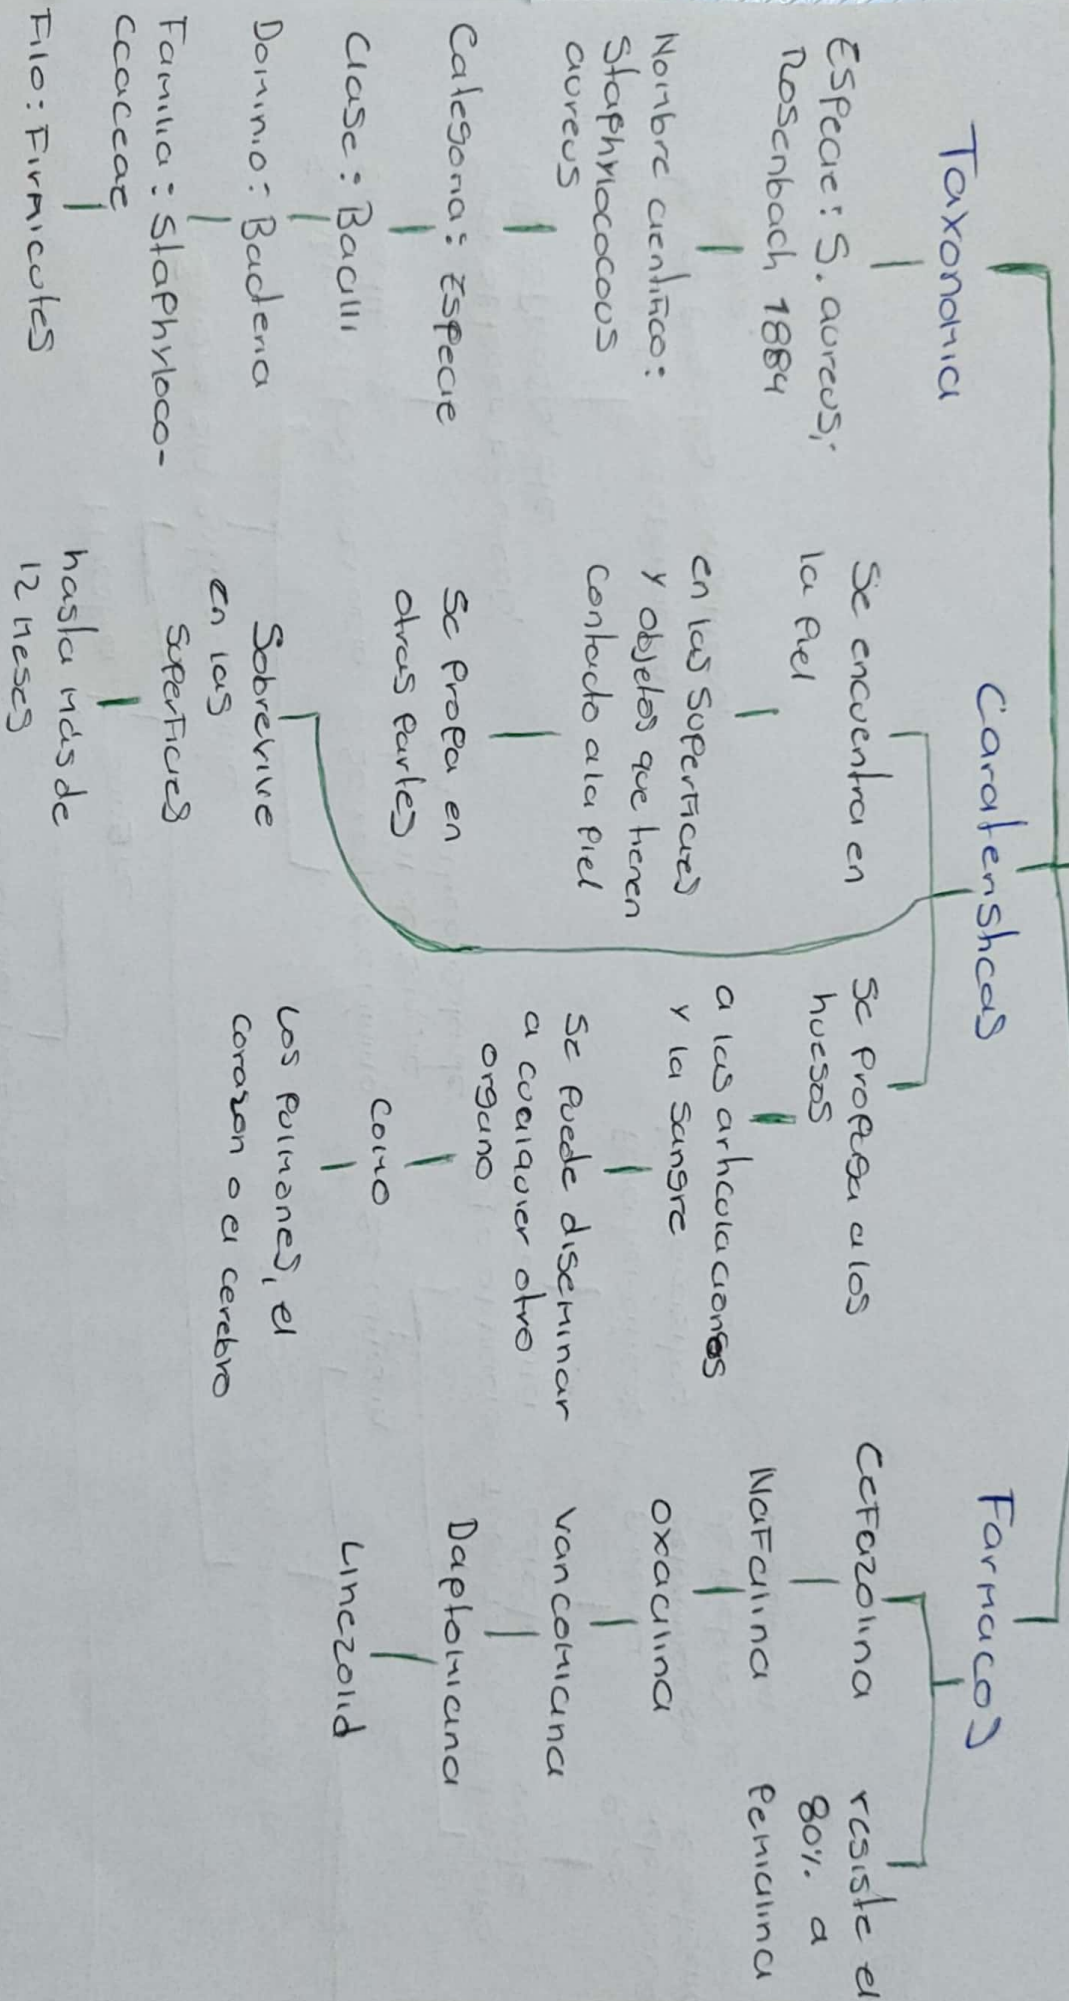 Taxonomia
Especie: S. aureus;
Rosenbach 1884
Nombre cientifico:
Staphylococcus
aureus
Categoria: Especie
Clase: Bacilli
Dominio: Bacteria
Familia: Staphyloco-
ccaceae
Filo: Firmicutes
Carateristicas
Se encuentra en
la piel
en las superficies
y objetos que tienen
contacto a la piel
Se propa en
otras partes
Sobrevive
en las
superficies
hasta más de
12 meses
Se propaga a los
huesos
a las articulaciones
y la sangre
Se puede diseminar
a cualquier otro
organo
Como
Los pulmones, el
corazon o el cerebro
Farmacos
Cefazolina
Nafcilina
oxacilina
Vancomicina
Daptomicina
Linezolid
resiste el
80% a
Penicilina